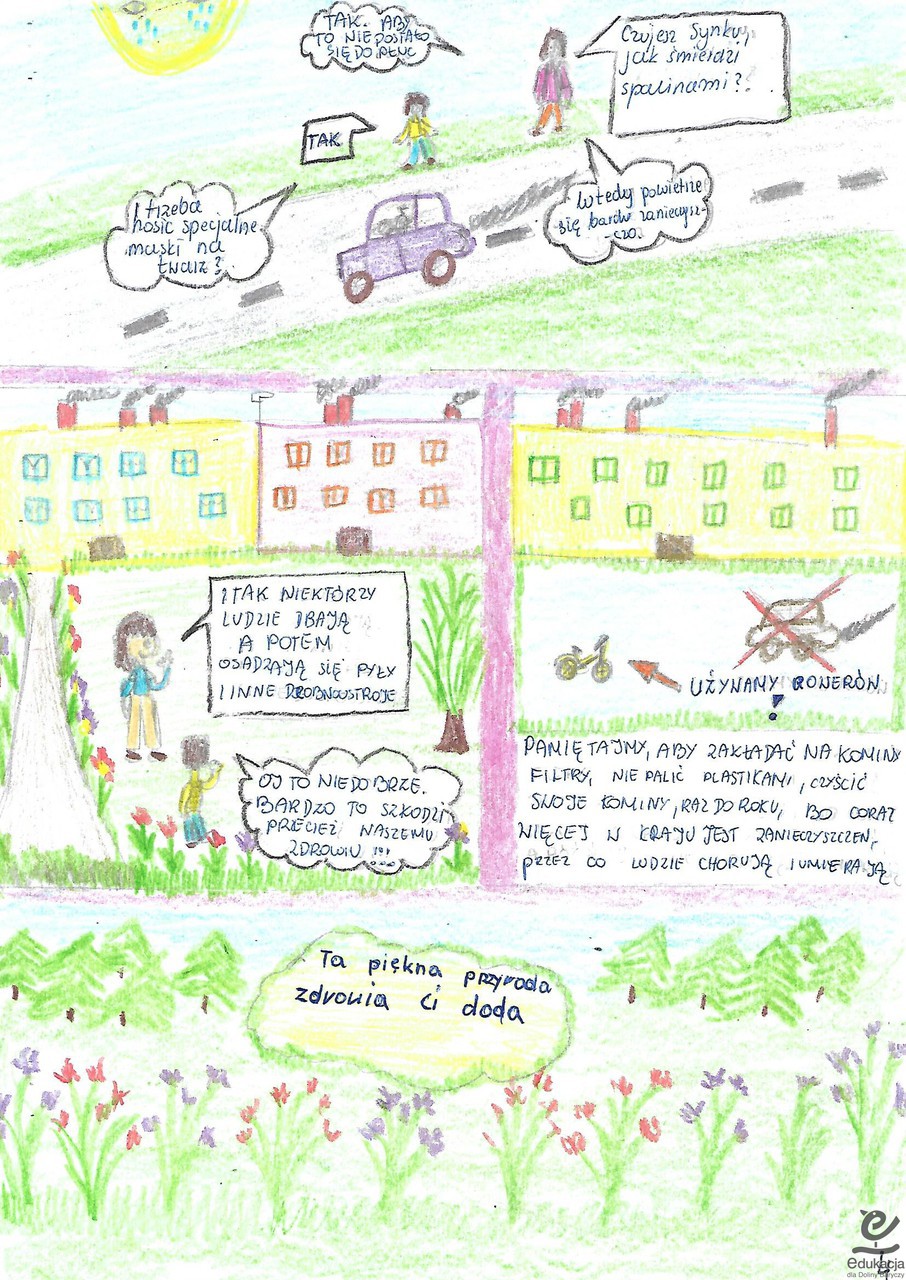 Czujesz Synku,
jak śmierdzi
spalinami?
TAK
Wtedy powietrze
się bardz zanieczysz-
-czo.
I trzeba
nosić specjalne
maski na
twarz?
TAK. ABY
TO NIE DOSTAŁO
SIĘ DO PŁUC
I TAK NIEKTÓRZY
LUDZIE DBAJĄ
A POTEM
OSADZAJĄ SIĘ PYŁY
I INNE DROBNOUSTROJE
OJ TO NIEDOBRZE.
BARDZO TO SZKODZI
PRZECIEŻ NASZEMU
ZDROWIU !!!
UŻYWAMY ROWERÓW
!
PAMIĘTAJMY, ABY ZAKŁADAĆ NA KOMINY
FILTRY, NIE PALIĆ PLASTIKAMI, CZYŚCIĆ
SWOJE KOMINY, RAZ DO ROKU, BO CORAZ
WIĘCEJ W KRAJU JEST ZANIECZYSZCZEŃ,
PRZEZ CO LUDZIE CHORUJĄ I UMIERAJĄ
Ta piękna przyroda
zdrowia Ci doda
edukacja
dla Doliny Baryczy